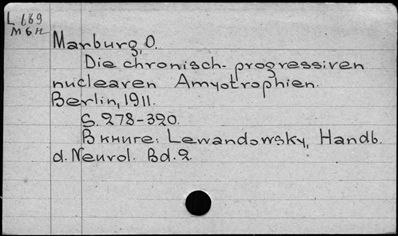 L 689
М Б Н
Marburg, O.
Die chronisch-progressiven
nuclearen Amyotrophien.
Berlin, 1911.
S. 278-320.
В книге: Lewandowsky, Handb.
d. Neurol. Bd. 2